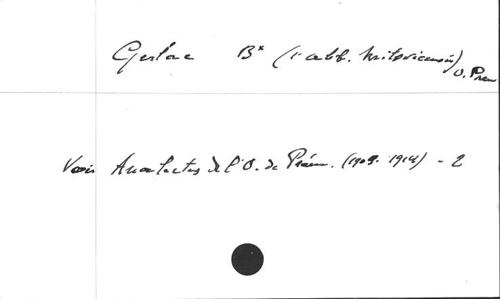 Gerlac B* (1er abb. Milovicensis) O. Prem
Voir Analectes de l'O. de Prém. (1909-1914) - 2